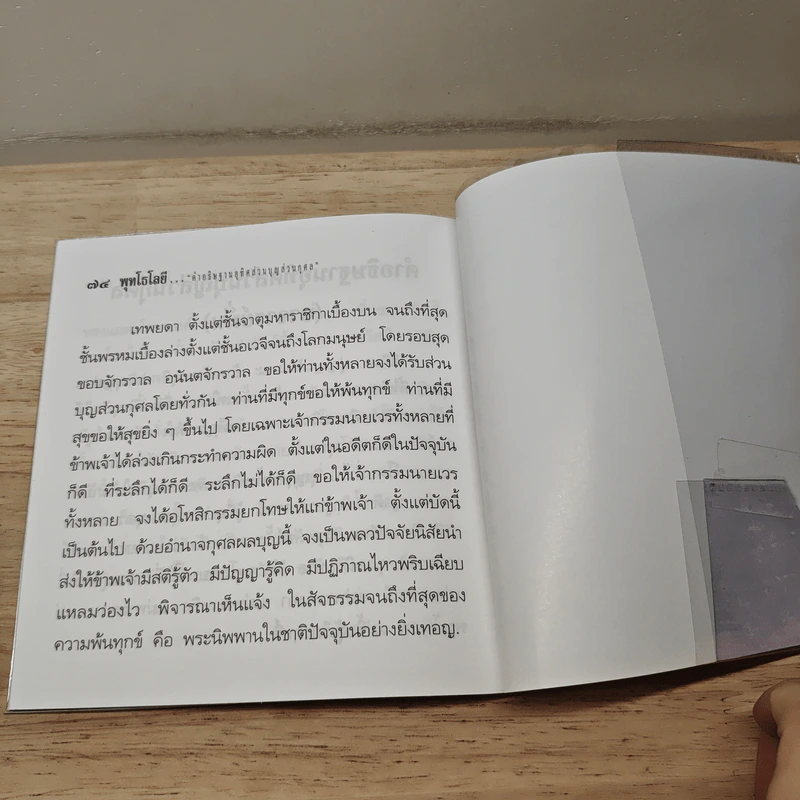 ๗๔ พุทโธโลยี... "คำอธิษฐานอุทิศส่วนบุญส่วนกุศล"
เทพยดา ตั้งแต่ชั้นจาตุมหาราชิกาเบื้องบน จนถึงที่สุด
ชั้นพรหมเบื้องล่างตั้งแต่ชั้นอเวจีจนถึงโลกมนุษย์ โดยรอบสุด
ขอบจักรวาล อนันตจักรวาล ขอให้ท่านทั้งหลายจงได้รับส่วน
บุญส่วนกุศลโดยทั่วกัน ท่านที่มีทุกข์ขอให้พ้นทุกข์ ท่านที่มี
สุขขอให้สุขยิ่ง ๆ ขึ้นไป โดยเฉพาะเจ้ากรรมนายเวรทั้งหลายที่
ข้าพเจ้าได้ล่วงเกินกระทำความผิด ตั้งแต่ในอดีตก็ดีในปัจจุบัน
ก็ดี ที่ระลึกได้ก็ดี ระลึกไม่ได้ก็ดี ขอให้เจ้ากรรมนายเวร
ทั้งหลาย จงได้อโหสิกรรมยกโทษให้แก่ข้าพเจ้า ตั้งแต่บัดนี้
เป็นต้นไป ด้วยอำนาจกุศลผลบุญนี้ จงเป็นพลวปัจจัยนิสัยนำ
ส่งให้ข้าพเจ้ามีสติรู้ตัว มีปัญญารู้คิด มีปฏิภาณไหวพริบเฉียบ
แหลมว่องไว พิจารณาเห็นแจ้ง ในสัจธรรมจนถึงที่สุดของ
ความพ้นทุกข์ คือ พระนิพพานในชาติปัจจุบันอย่างยิ่งเทอญ.